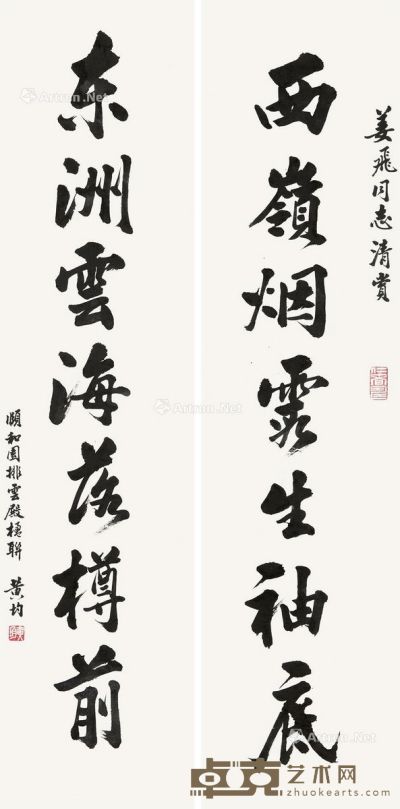 姜飛同志清賞
西嶺烟霞生袖底
东洲雲海落樽前
頤和園排雲殿楹聯 黄均
Artron.Net
Artron.Net
Artron.Net
Artron.Net
卓克艺术网
zhuokearts.com